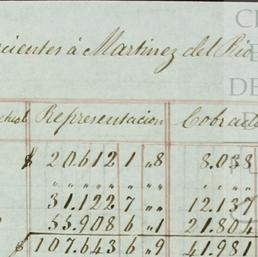 cientes á Martinez del Rio
Representacion Cobrado
$ 20.612 1 „8 8.038
„ „ „ „ „ „ „ „ „ „
31.122 7 „ „ 12.137
55.908 6 „1 21.804
$ 107.643 6 „9 41.981